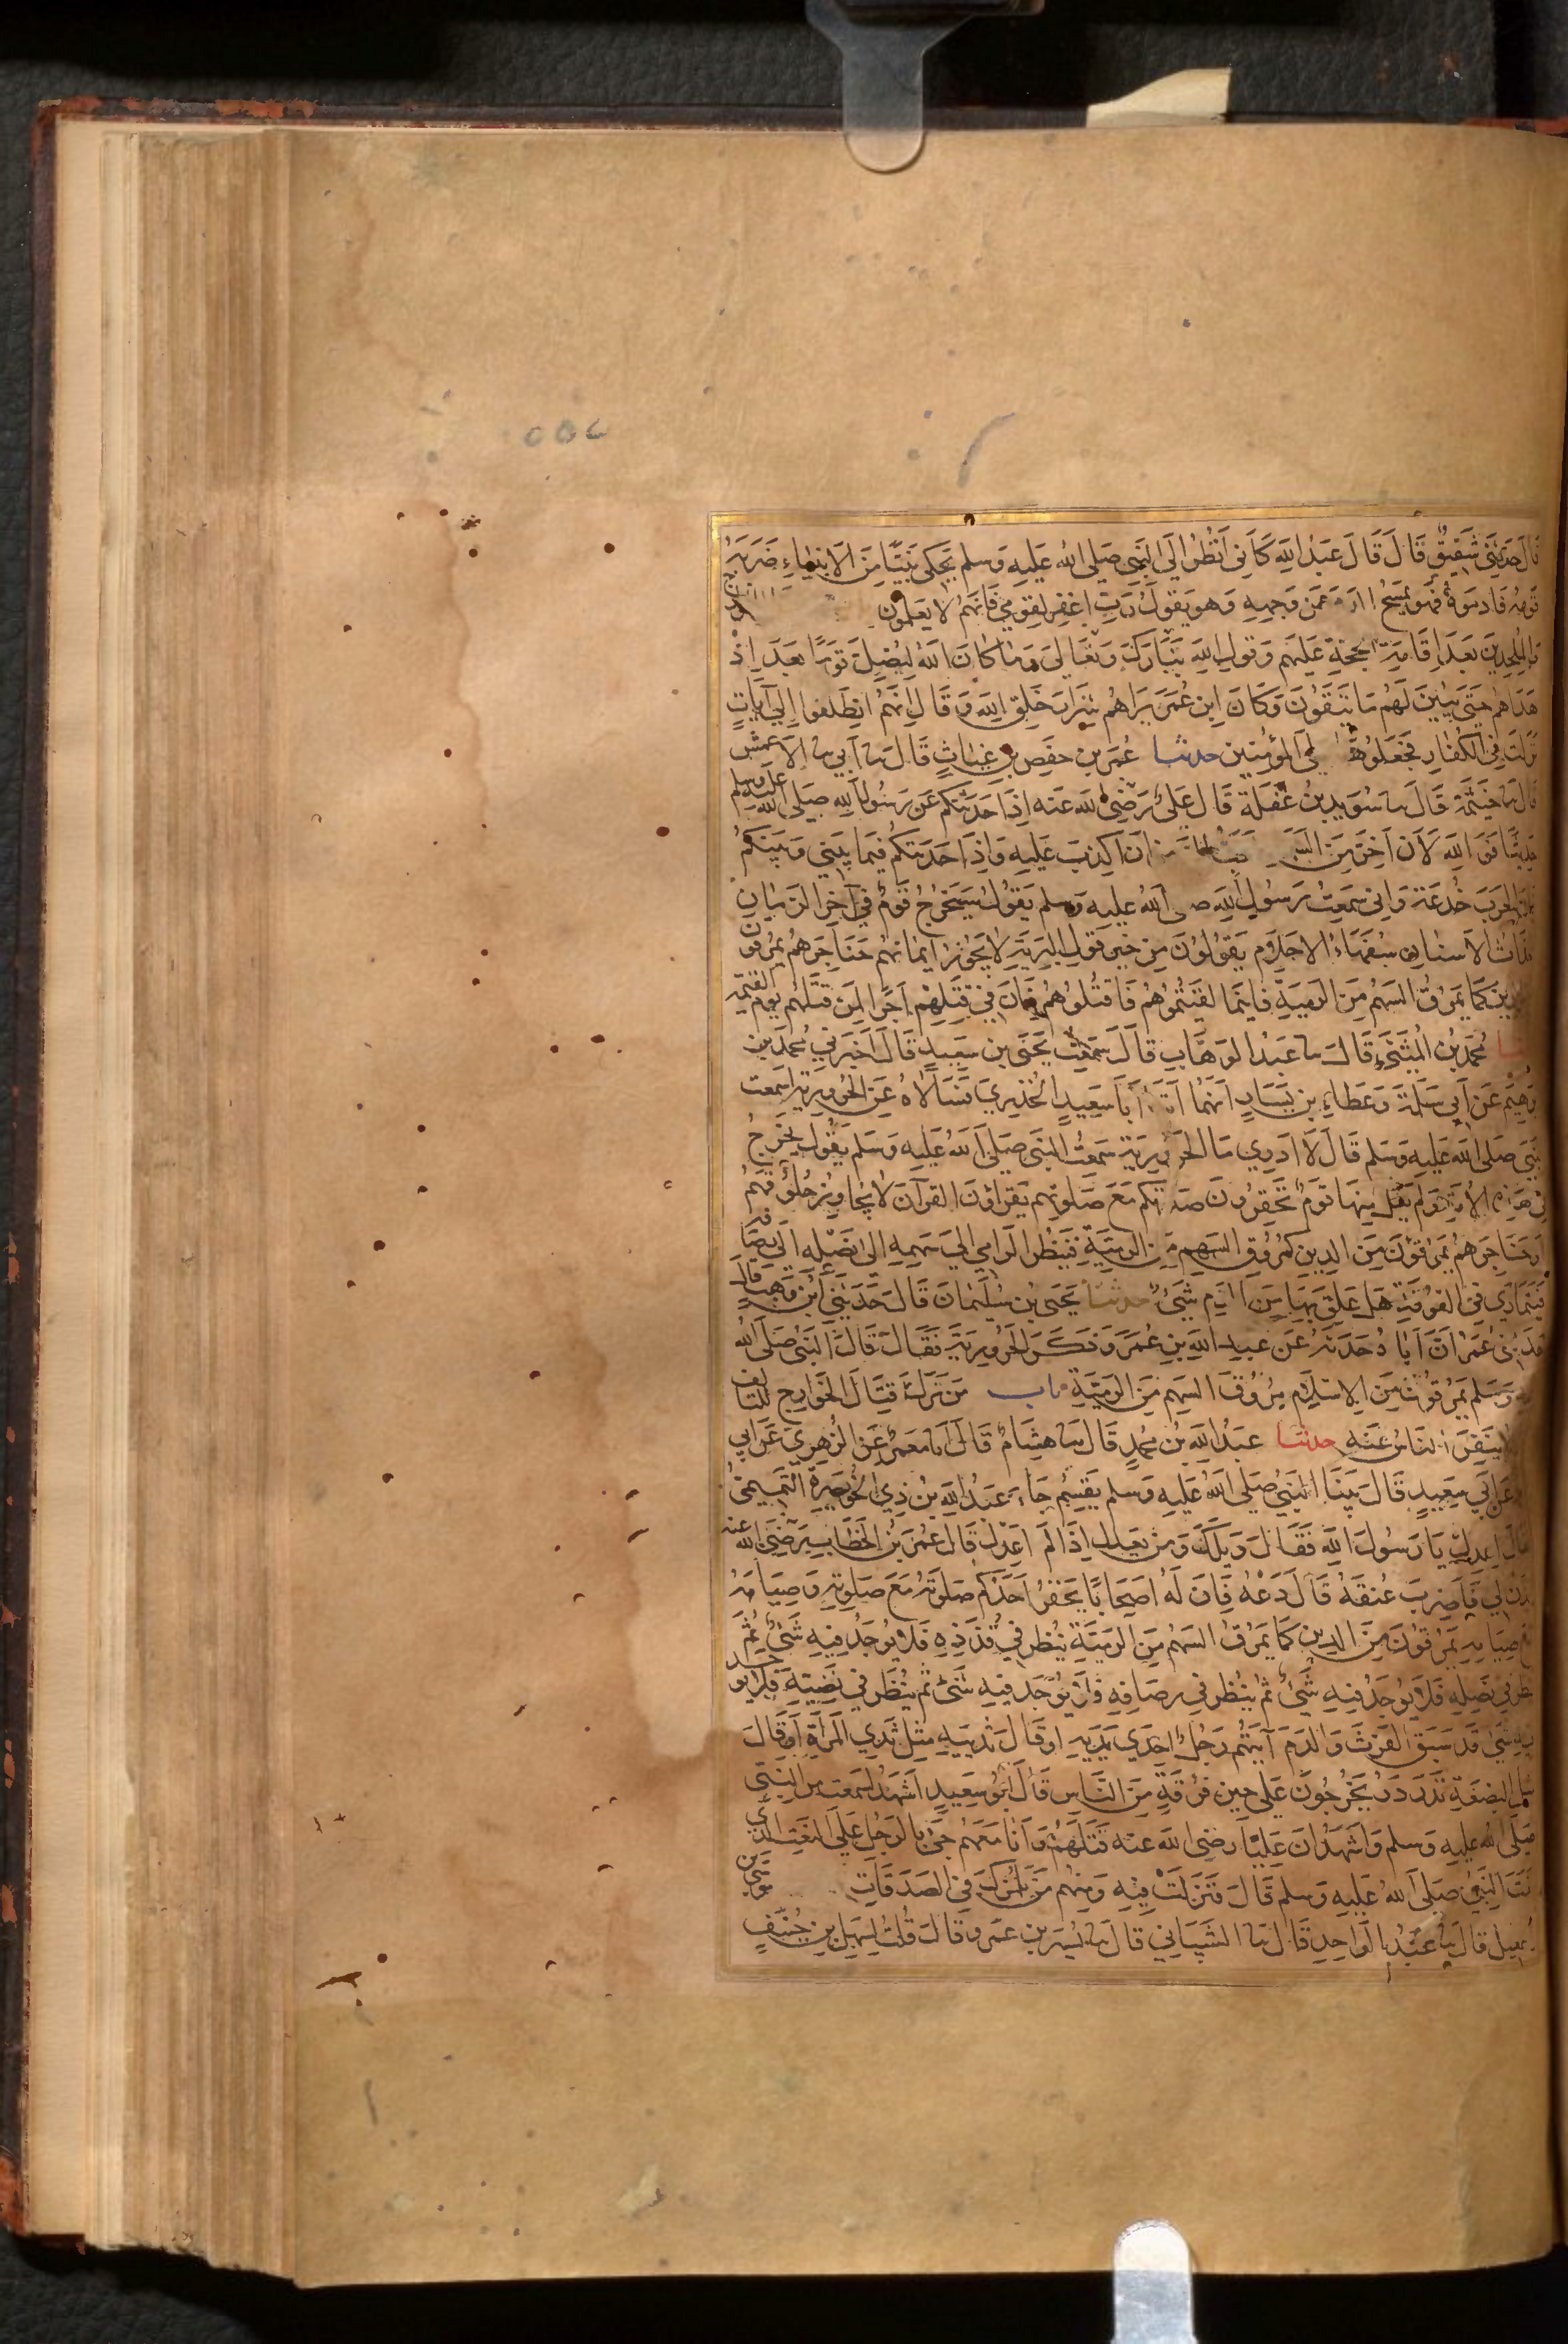 ٥٥٤
قال حدثني شقيق قال قال عبد الله كاني انظر الى النبي صلى الله عليه وسلم يحكي نبيا من الانبياء ضربه
قومه فادموه فهو يمسح الدم عن وجهه وهو يقول رب اغفر لقومي فانهم لا يعلمون
والملحدين بعد اقامة الحجة عليهم وقول الله تبارك وتعالى وما كان الله ليضل قوما بعد اذ
هداهم حتى يبين لهم ما يتقون وكان ابن عمر يراهم شرار خلق الله وقال انهم انطلقوا الى آيات
نزلت في الكفار فجعلوها على المؤمنين حدثنا عمر بن حفص بن غياث قال سا ابي سا الاعمش
قال سا خيثمة قال سا سويد بن غفلة قال علي رضي الله عنه اذا حدثتكم عن رسول الله صلى الله عليه وسلم
حديثا فوالله لان اخر من السماء احب الي من ان اكذب عليه واذا حدثتكم فيما بيني وبينكم
فان الحرب خدعة واني سمعت رسول الله صلى الله عليه وسلم يقول سيخرج قوم في آخر الزمان
حداث الاسنان سفهاء الاحلام يقولون من خير قول البرية لا يجوز ايمانهم حناجرهم يمرقون
الدين كما يمرق السهم من الرمية فاينما لقيتموهم فاقتلوهم فان في قتلهم اجرا لمن قتلهم يوم القيمة
محمد بن المثنى قال سا عبد الوهاب قال سمعت يحيى بن سعيد قال اخبرني محمد بن
برهيم عن ابي سلمة وعطاء بن يسار انهما اتيا ابا سعيد الخدري فسالاه عن الحرورية اسمعت
النبي صلى الله عليه وسلم قال لا ادري ما الحرورية سمعت النبي صلى الله عليه وسلم يقول يخرج
في هذه الامة ولم يقل منها قوم تحقرون صلاتكم مع صلوتهم يقراون القرآن لا يجاوز حلوقهم
او حناجرهم يمرقون من الدين كمروق السهم من الرمية فينظر الرامي الى سهمه الى نصله الى رصافه
فيتمارى في الفوقة هل علق بها من الدم شيء حدثنا يحيى بن سليمان قال حدثني ابن وهب قال
حدثني عمر ان اباه حدثه عن عبد الله بن عمر وذكر الحرورية فقال قال النبي صلى الله
عليه وسلم يمرقون من الاسلام مروق السهم من الرمية باب من ترك قتال الخوارج للتالف
ولا ينفر الناس عنه حدثنا عبد الله بن محمد قال سا هشام قال انا معمر عن الزهري عن ابي
عن ابي سعيد قال بينا النبي صلى الله عليه وسلم يقسم جاء عبد الله بن ذي الخويصرة التميمي
فقال اعدل يا رسول الله فقال ويلك ومن يعدل اذا لم اعدل قال عمر بن الخطاب رضي الله عنه
ايذن لي فاضرب عنقه قال دعه فان له اصحابا يحقر احدكم صلوته مع صلوته وصيامه
مع صيامه يمرقون من الدين كما يمرق السهم من الرمية ينظر في قذذه فلا يوجد فيه شيء ثم
ينظر في نصله فلا يوجد فيه شيء ثم ينظر في رصافه فلا يوجد فيه شيء ثم ينظر في نضيه فلا يوجد
فيه شيء قد سبق الفرث والدم آيتهم رجل احدى يديه او قال ثدييه مثل ثدي المراة او قال
مثل البضعة تدردر يخرجون على حين فرقة من الناس قال ابو سعيد اشهد لسمعت من النبي
صلى الله عليه وسلم واشهد ان عليا رضي الله عنه قتلهم وانا معهم جئ بالرجل على النعت الذي
نعت النبي صلى الله عليه وسلم قال فنزلت فيه ومنهم من يلمزك في الصدقات
اسمعيل قال سا عبد الواحد قال سا الشيباني قال سا يسير بن عمرو قال قلت لسهل بن حنيف